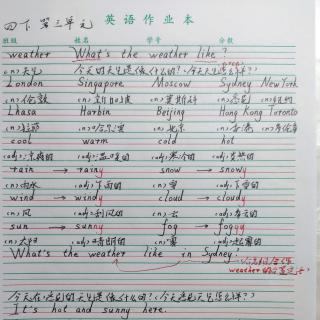 四下 第三单元 英语作业本
班级 姓名 学号 分数
weather What's the weather like?
(n)天气 今天的天气是像什么的?(今天天气怎么样?)
London Singapore Moscow Sydney New York
(n)伦敦 (n)新加坡 (n)莫斯科 (n)悉尼 (n)纽约
Lhasa Harbin Beijing Hong Kong Toronto
(n)拉萨 (n)哈尔滨 (n)北京 (n)香港 (n)多伦多
cool warm cold hot
(adj)凉爽的 (adj)温暖的 (adj)寒冷的 (adj)炎热的
rain → rainy snow → snowy
(n)雨水 (adj)下雨的 (n)雪 (adj)下雪的
wind → windy cloud → cloudy
(n)风 (adj)刮风的 (n)云 (adj)多云的
sun → sunny fog → foggy
(n)太阳 (adj)晴朗的 (n)雾 (adj)起雾的
What's the weather like in Sydney?
weather
今天在悉尼的天气是像什么的?(今天悉尼天气怎么样?)
It's hot and sunny here.